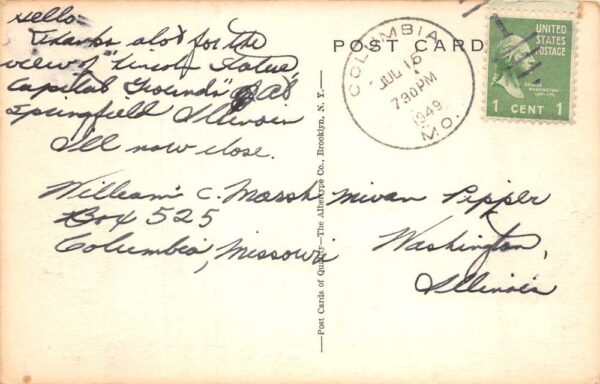 Hello:
Thanks alot for the
view of "Lincoln Statue",
Capital Grounds" at
Springfield Illinois
I'll now close.
William C. Marsh
Box 525
Columbia, Missouri
POST CARD
COLUMBIA
JUL 15
730PM
1949
MO.
UNITED
STATES
POSTAGE
1 CENT 1
Pepper
Washington,
Illinois
—Post Cards of Quality—The Albertype Co., Brooklyn, N. Y.—